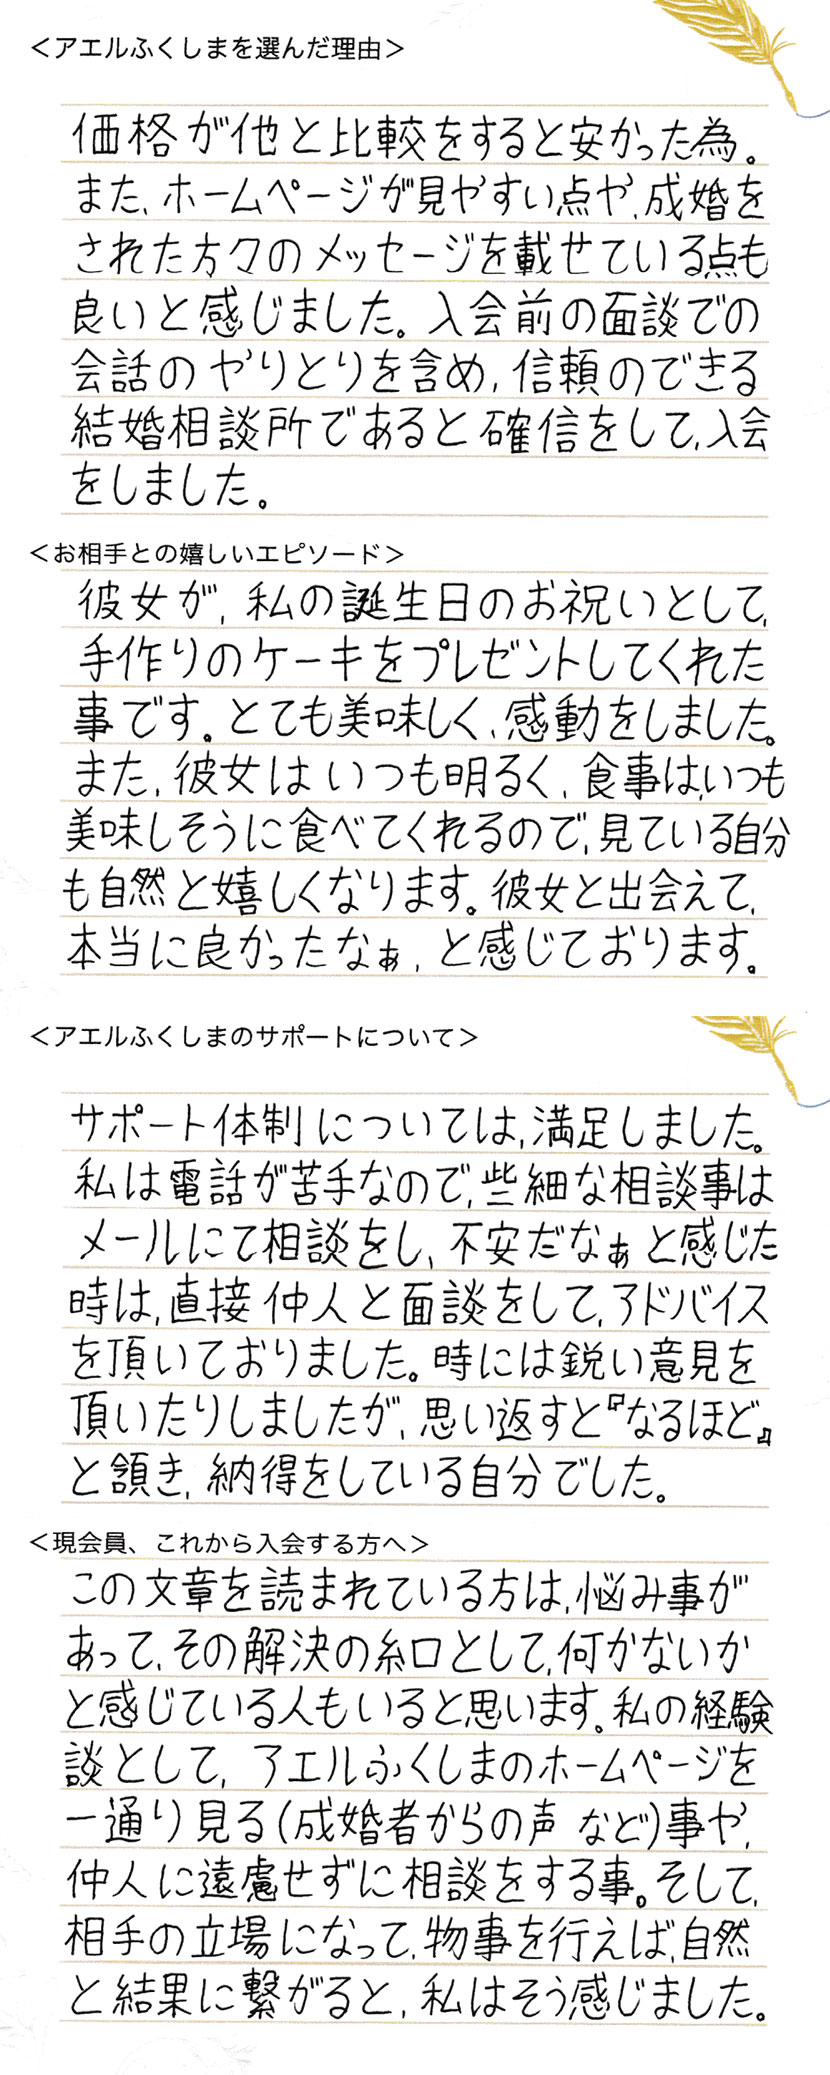 ＜アエルふくしまを選んだ理由＞
価格が他と比較をすると安かった為。
また、ホームページが見やすい点や、成婚を
された方々のメッセージを載せている点も
良いと感じました。入会前の面談での
会話のやりとりを含め、信頼のできる
結婚相談所であると確信をして、入会
をしました。
＜お相手との嬉しいエピソード＞
彼女が、私の誕生日のお祝いとして、
手作りのケーキをプレゼントしてくれた
事です。とても美味しく、感動をしました。
また、彼女はいつも明るく、食事は、いつも
美味しそうに食べてくれるので、見ている自分
も自然と嬉しくなります。彼女と出会えて、
本当に良かったなぁ、と感じております。
＜アエルふくしまのサポートについて＞
サポート体制については、満足しました。
私は電話が苦手なので、些細な相談事は
メールにて相談をし、不安だなぁと感じた
時は、直接仲人と面談をして、アドバイス
を頂いておりました。時には鋭い意見を
頂いたりしましたが、思い返すと『なるほど』
と頷き、納得をしている自分でした。
＜現会員、これから入会する方へ＞
この文章を読まれている方は、悩み事が
あって、その解決の糸口として、何かないか
と感じている人もいると思います。私の経験
談として、アエルふくしまのホームページを
一通り見る(成婚者からの声 など)事や、
仲人に遠慮せずに相談をする事。そして、
相手の立場になって、物事を行えば、自然
と結果に繋がると、私はそう感じました。